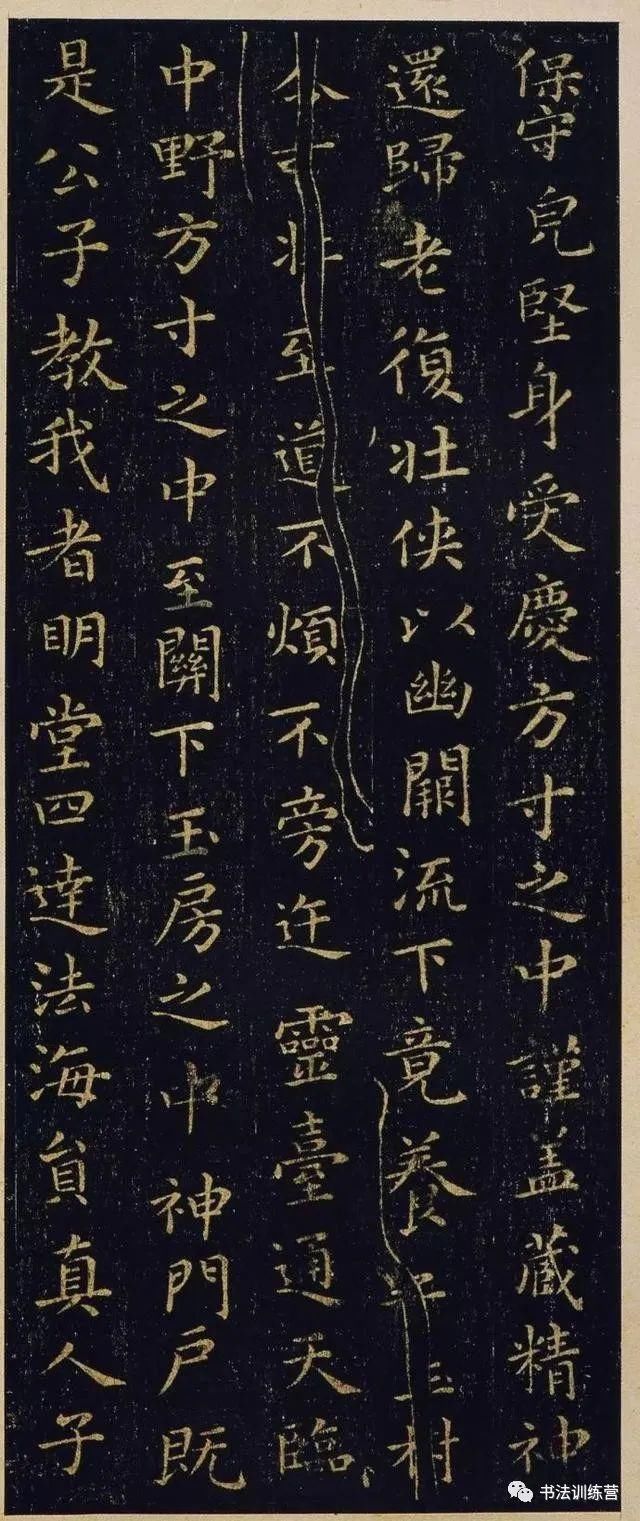 保守皃堅身受慶方寸之中謹盖藏精神
還歸老復壯俠以幽闕流下竟養玉樹
令可壯至道不煩不旁迕靈臺通天臨
中野方寸之中至關下玉房之中神門户既
是公子教我者明堂四達法海貟真人子
书法训练营